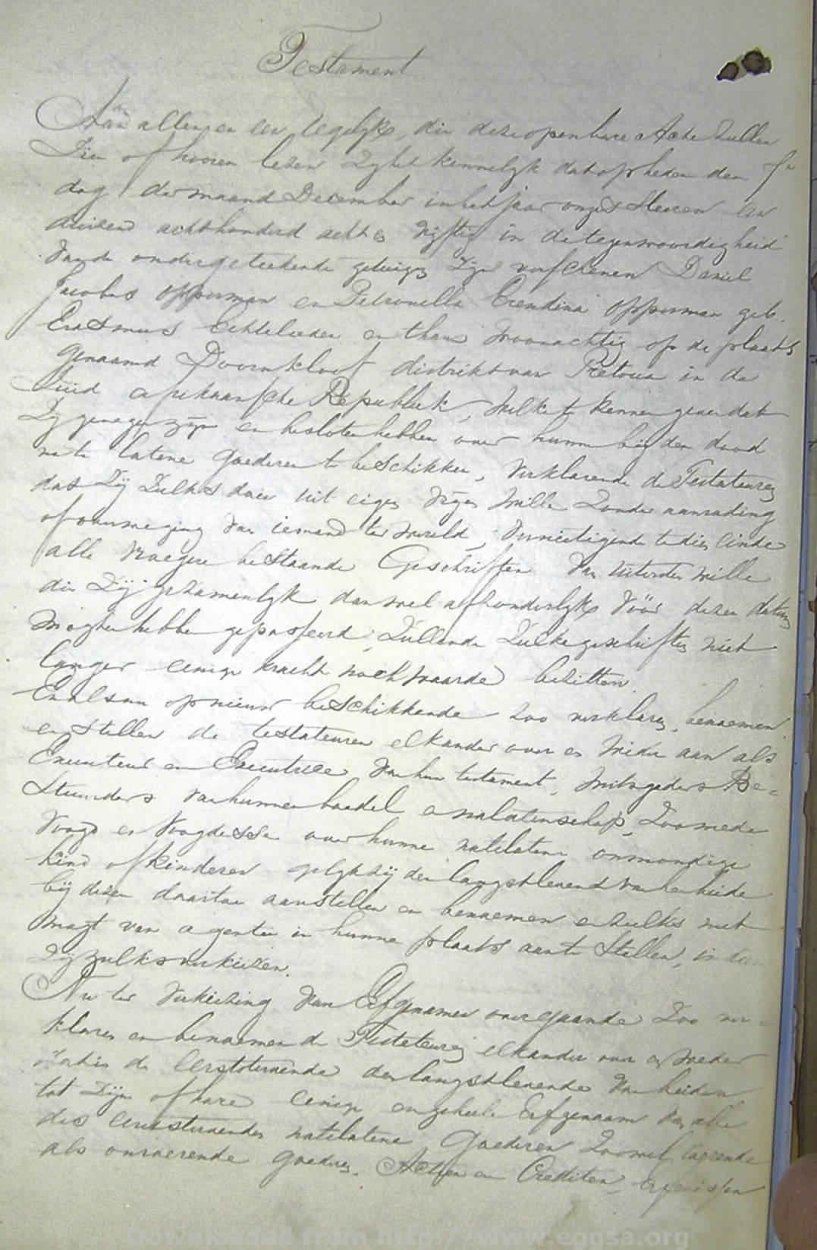 Testament
Aan allen en een iegelyk, die deze openbare Acte zullen
Zien of hooren lezen Zy het kennelyk dat op heden den
dag der maand December in het jaar onzes Heeren een
duizend achthonderd acht en vyftig in de tegenwoordigheid
van de ondergeteekende getuigen Zyn verschenen Daniel
Jacobus Opperman en Petronella Opperman geb.
Erasmus Echtelieden en thans woonachtig op de plaats
genaamd Doornkloof distrikt van Pretoria in de
Zuid Afrikaansche Republiek, welke te kennen geven dat
Zy genegen zyn en besloten hebben over hunne by den dood
na te latene goederen te beschikken, verklarende de Testateuren
dat Zy Zulks doen uit eigen vryen wille Zonder aanrading
of van iemand ter wereld, vernietigend te dien einde
alle vroegere bestaande Geschriften van uitersten wille
die Zy gezamenlyk dan wel afzonderlyk vóór dezen datum
mogten hebben gepasseerd, Zullende Zulke geschriften niet
langer eenige kracht noch waarde bezitten.
En alsnu op nieuw beschikkende zoo verklaren, benoemen
en stellen de testateuren elkander over en weder aan als
Executeur en Executrice van hun testament, mitsgaders Be=
stuurders van hunne boedel en nalatenschap, Zoomede
Voogd en Voogdesse over hunne natelaten onmondige
kind of kinderen gelyk zy den langstlevend van hen beide
by dezen daartoe aanstellen en benoemen en zulks met
magt van agentie in hunne plaats aan te stellen, in dien
Zy zulks verkiezen.
Nu ter verkiezing van Erfgenamen overgaande Zoo ver=
klaren en benoemen de Testateuren elkander over en weder
de Eerststervende den langstlevende van beiden
tot Zyn of hare eenige en geheele Erfgenaam van alle
des eerststervendes natelatene Goederen Zoowel roerende
als onroerende goederen, Actien en Crediten,
Downloaded from http://www.eggsa.org